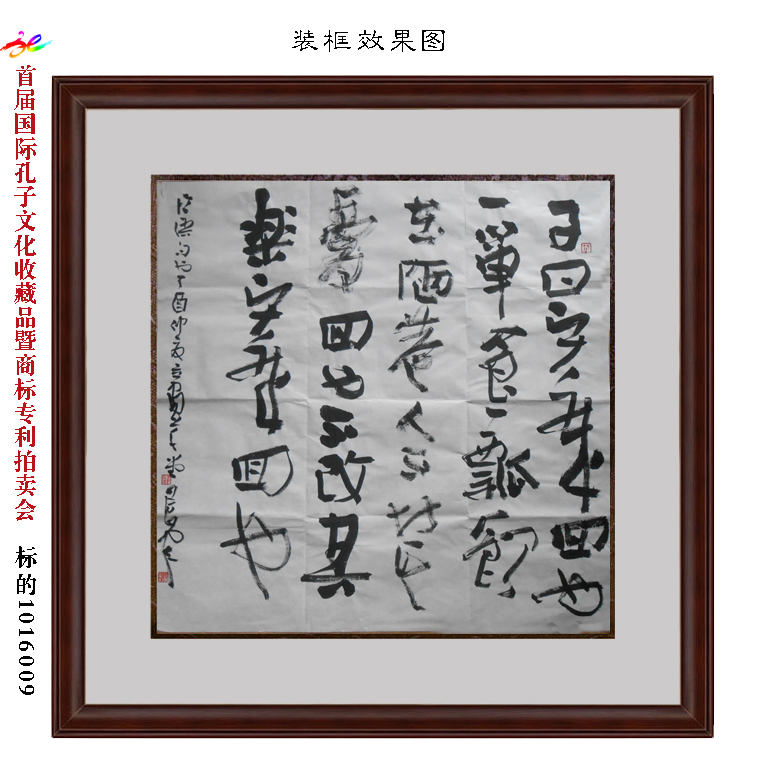 装框效果图
首届国际孔子文化收藏品暨商标专利拍卖会 标的1016009
子曰贤哉回也
一箪食一瓢飲
在陋巷人不堪其
憂回也不改其
樂贤哉回也